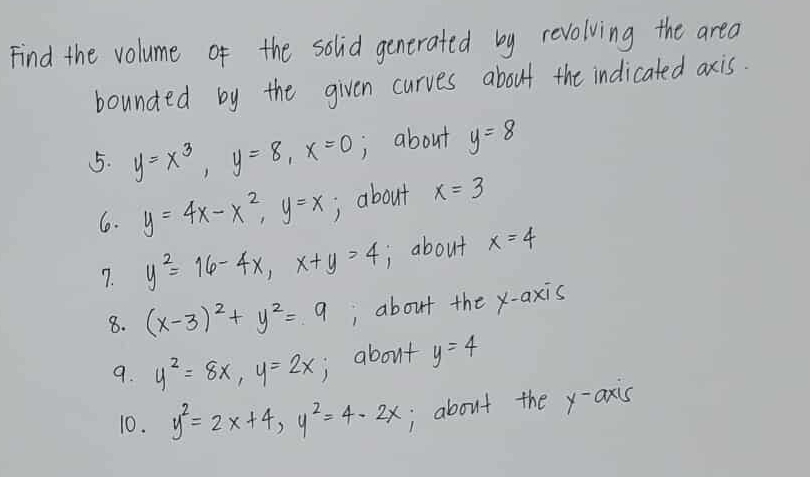 Find the volume of the solid generated by revolving the area
bounded by the given curves about the indicated axis.
5. y=x³, y=8, x=0; about y=8
6. y=4x-x², y=x; about x=3
7. y²=16-4x, x+y=4; about x=4
8. (x-3)²+y²=9; about the y-axis
9. y²=8x, y=2x; about y=4
10. y²=2x+4, y²=4-2x; about the y-axis